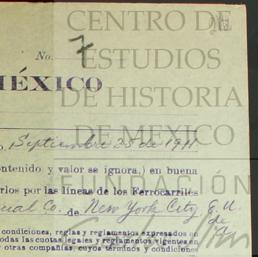 CENTRO DE
ESTUDIOS
DE HISTORIA
DE MEXICO
FUNDACIÓN
No. 7
MÉXICO
Septiembre 25 de 1911.
contenido y valor se ignora,) en buena
arlos por las líneas de los Ferrocarriles
Co. de New York City E. U.
de
condiciones, reglas y reglamentos expresados en
todas las cuotas legales y reglamentos vigentes en
y otras compañías, cuyos términos y condiciones